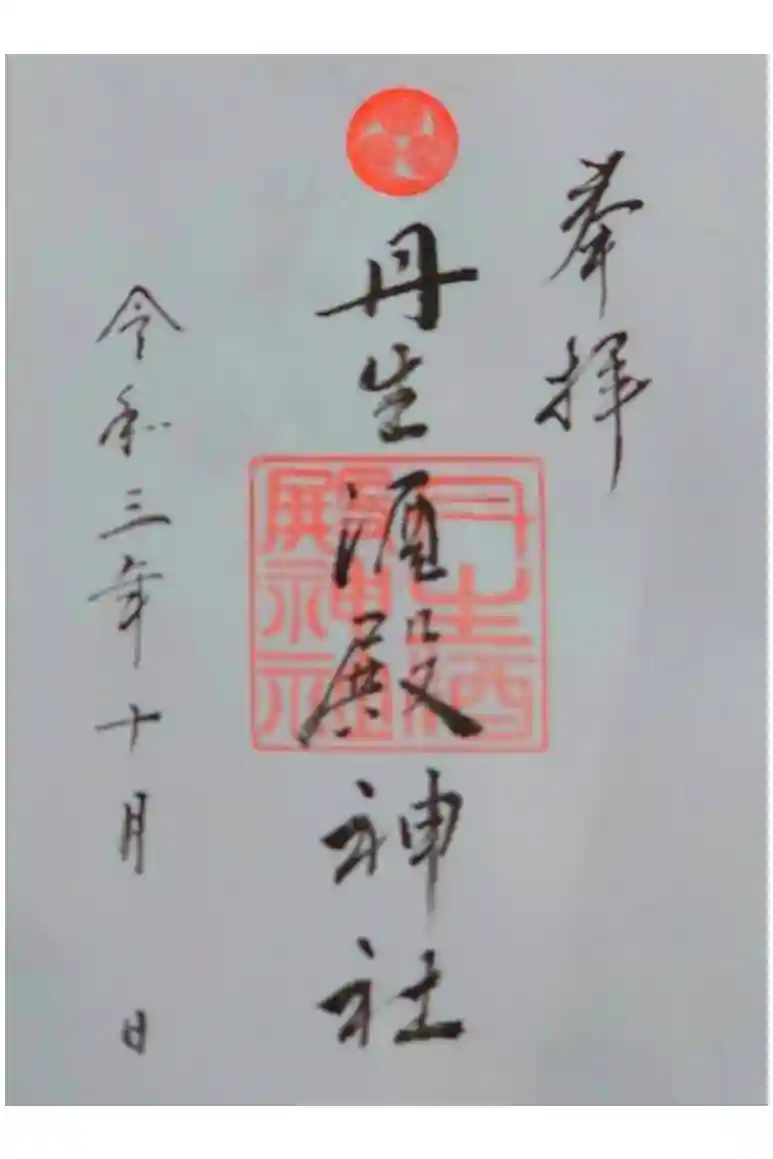 奉拝
丹生酒殿神社
丹生酒
殿神社
令和三年十月 日